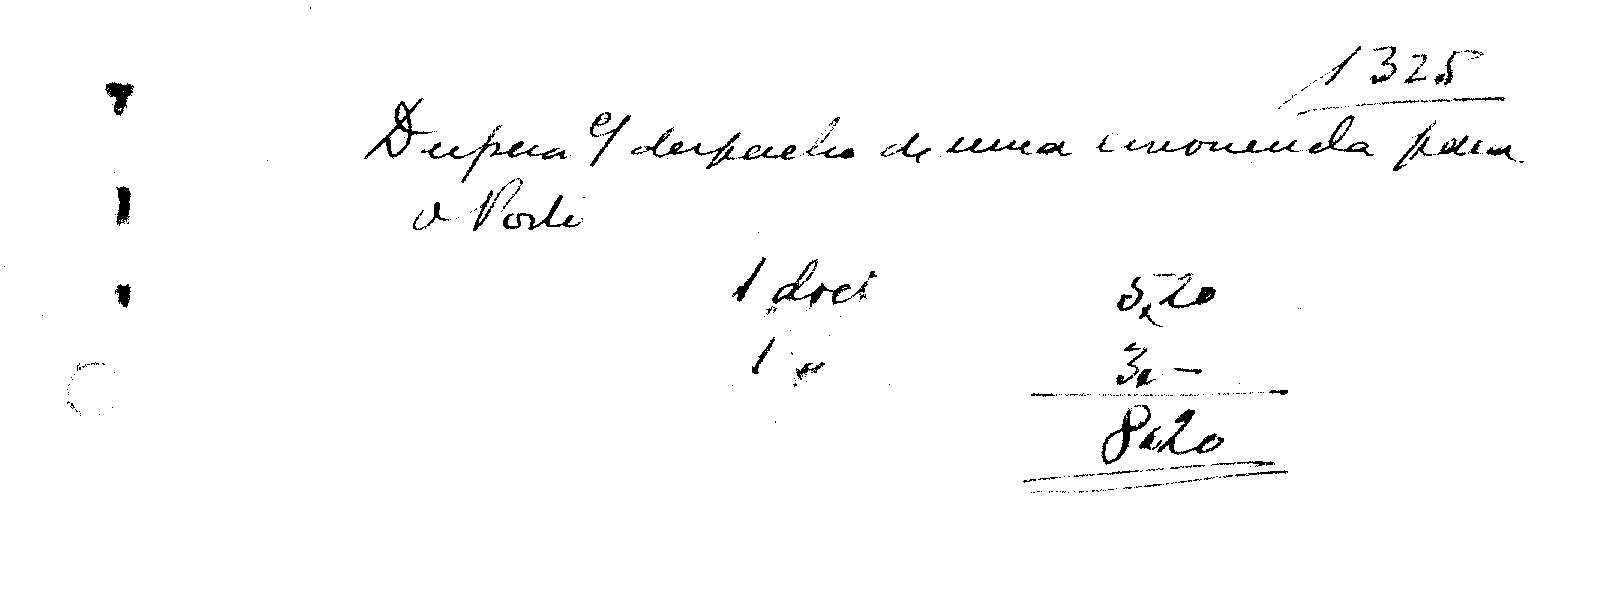 1325
Despesa c/ despacho de uma encomenda para
o Porto
1 doct 5,20
1 " 3,-
8,20